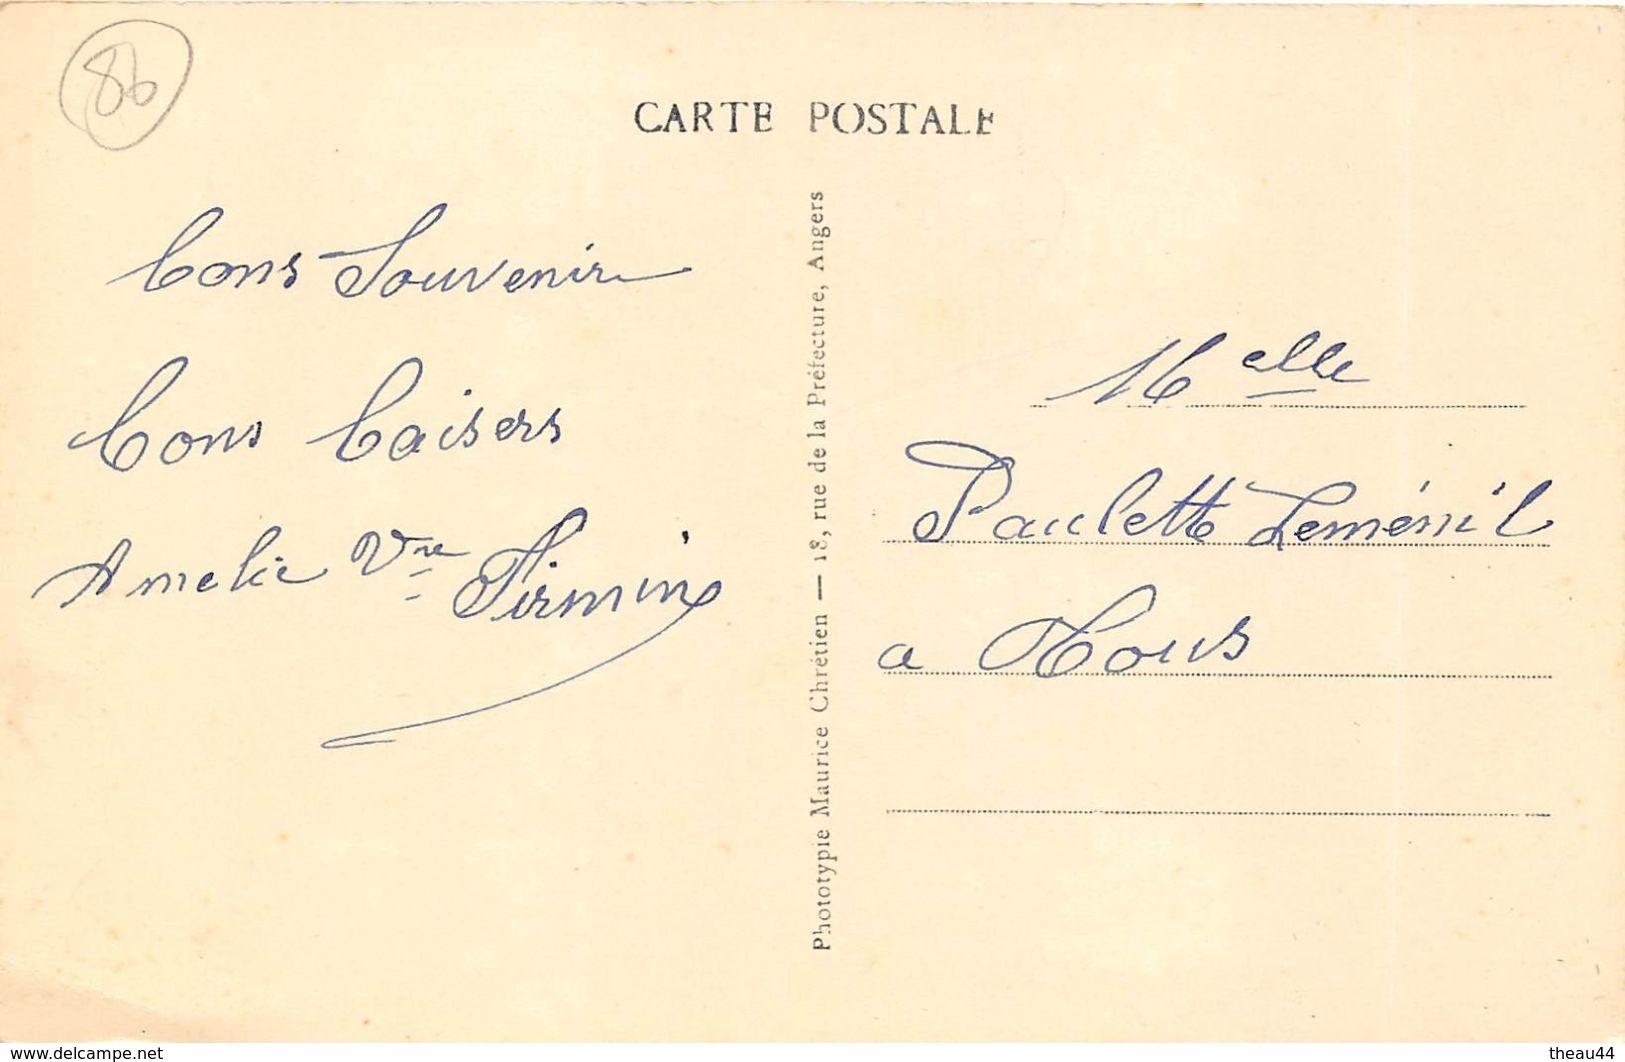 86
CARTE POSTALE
bons Souvenir
bons baisers
Amelie Vve Firmin
Phototypie Maurice Chrétien — 18, rue de la Préfecture, Angers
Melle
Paulette Leménil
a Tous
www.delcampe.net
theau44